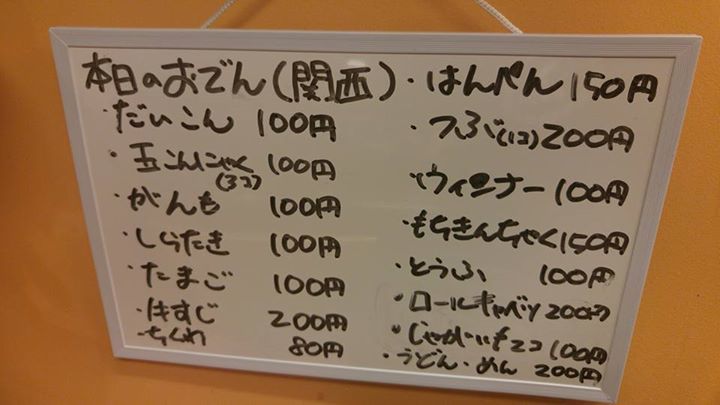 本日のおでん(関西)
・だいこん 100円
・玉こんにゃく(3コ) 100円
・がんも 100円
・しらたき 100円
・たまご 100円
・牛すじ 200円
・ちくわ 80円
・はんぺん 150円
・つぶ(1コ) 200円
・ウィンナー 100円
・もちきんちゃく 150円
・とうふ 100円
・ロールキャベツ 200円
・じゃがいも2コ 100円
・うどん・めん 200円